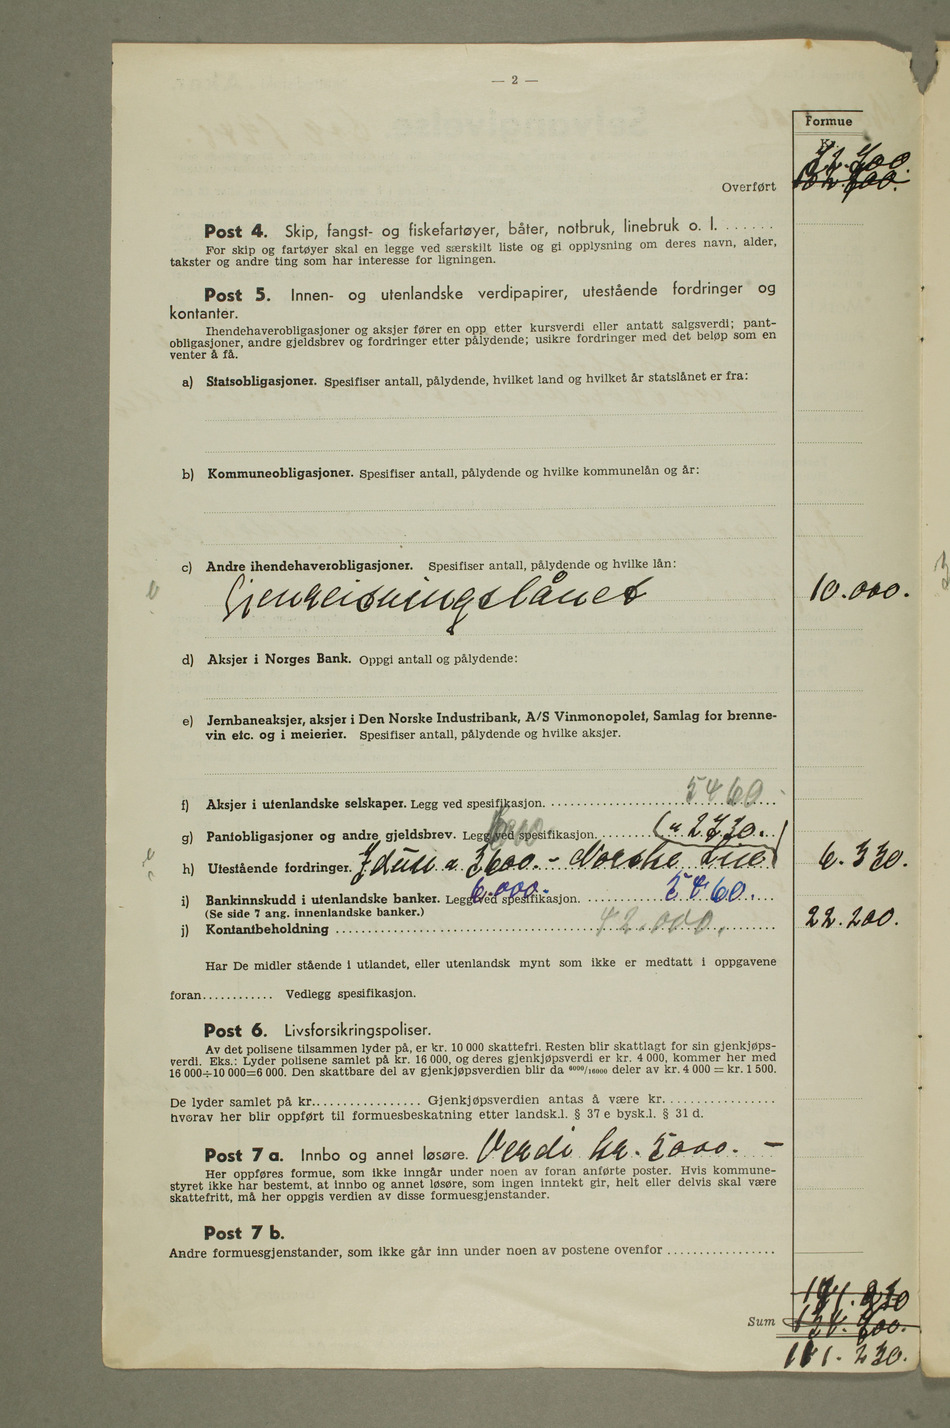 — 2 —
Formue
Kr.
72.700.
Overført
Post 4. Skip, fangst- og fiskefartøyer, båter, notbruk, linebruk o. l. .......
For skip og fartøyer skal en legge ved særskilt liste og gi opplysning om deres navn, alder,
takster og andre ting som har interesse for ligningen.
Post 5. Innen- og utenlandske verdipapirer, utestående fordringer og
kontanter.
Ihendehaverobligasjoner og aksjer fører en opp etter kursverdi eller antatt salgsverdi; pant-
obligasjoner, andre gjeldsbrev og fordringer etter pålydende; usikre fordringer med det beløp som en
venter å få.
a) Statsobligasjoner. Spesifiser antall, pålydende, hvilket land og hvilket år statslånet er fra:
b) Kommuneobligasjoner. Spesifiser antall, pålydende og hvilke kommunelån og år:
c) Andre ihendehaverobligasjoner. Spesifiser antall, pålydende og hvilke lån:
Gjenreisningslånet 10.000.
d) Aksjer i Norges Bank. Oppgi antall og pålydende:
e) Jernbaneaksjer, aksjer i Den Norske Industribank, A/S Vinmonopolet, Samlag for brenne-
vin etc. og i meierier. Spesifiser antall, pålydende og hvilke aksjer.
5460
f) Aksjer i utenlandske selskaper. Legg ved spesifikasjon. ...............
g) Pantobligasjoner og andre gjeldsbrev. Legg ved spesifikasjon. ......... (a 2730.
h) Utestående fordringer. Idun a 3600.- Norske Liv) 6.330.
6.000. 5460.
i) Bankinnskudd i utenlandske banker. Legg ved spesifikasjon. ...............
(Se side 7 ang. innenlandske banker.) 22.200.
j) Kontantbeholdning ............... 42.000.
Har De midler stående i utlandet, eller utenlandsk mynt som ikke er medtatt i oppgavene
foran............ Vedlegg spesifikasjon.
Post 6. Livsforsikringspoliser.
Av det polisene tilsammen lyder på, er kr. 10 000 skattefri. Resten blir skattlagt for sin gjenkjøps-
verdi. Eks.: Lyder polisene samlet på kr. 16 000, og deres gjenkjøpsverdi er kr. 4 000, kommer her med
16 000÷10 000=6 000. Den skattbare del av gjenkjøpsverdien blir da 6000/16000 deler av kr. 4 000 = kr. 1 500.
De lyder samlet på kr................ Gjenkjøpsverdien antas å være kr.................
hvorav her blir oppført til formuesbeskatning etter landsk.l. § 37 e bysk.l. § 31 d.
Post 7 a. Innbo og annet løsøre. Verdi kr. 5000. -
Her oppføres formue, som ikke inngår under noen av foran anførte poster. Hvis kommune-
styret ikke har bestemt, at innbo og annet løsøre, som ingen inntekt gir, helt eller delvis skal være
skattefritt, må her oppgis verdien av disse formuesgjenstander.
Post 7 b.
Andre formuesgjenstander, som ikke går inn under noen av postene ovenfor .................
Sum
111.230.